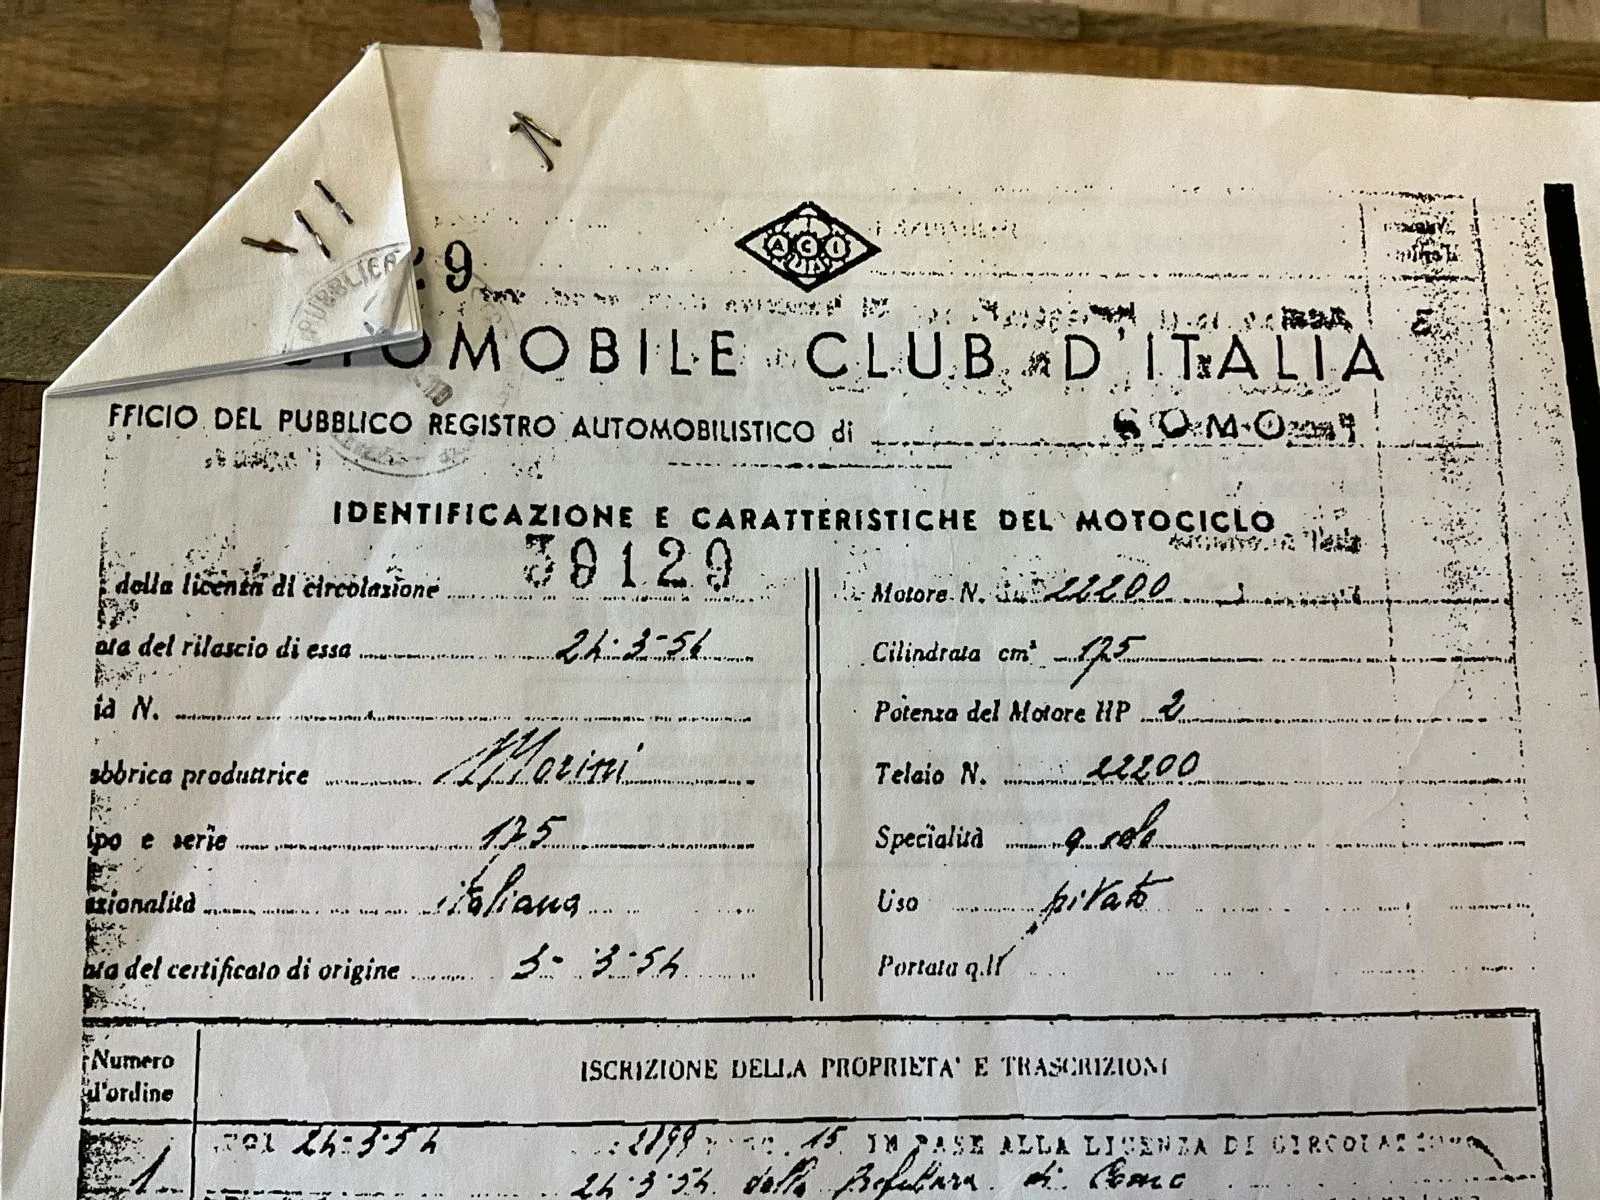 PUBBLICA
9
ACI
OMOBILE CLUB D'ITALIA
FFICIO DEL PUBBLICO REGISTRO AUTOMOBILISTICO di COMO
IDENTIFICAZIONE E CARATTERISTICHE DEL MOTOCICLO
della licenza di circolazione 38129
ata del rilascio di essa 24-3-54
id N.
abbrica produttrice Morini
ipo e serie 175
azionalità italiana
ata del certificato di origine 3-3-54
Motore N. 22200
Cilindrata cm³ 175
Potenza del Motore HP 2
Telaio N. 22200
Specialità a solo
Uso privato
Portata q.li
Numero d'ordine
ISCRIZIONE DELLA PROPRIETA' E TRASCRIZIONI
1
24-3-54 2899 15 IN BASE ALLA LICENZA DI CIRCOLAZIONE
24-3-54 della prefettura di Como